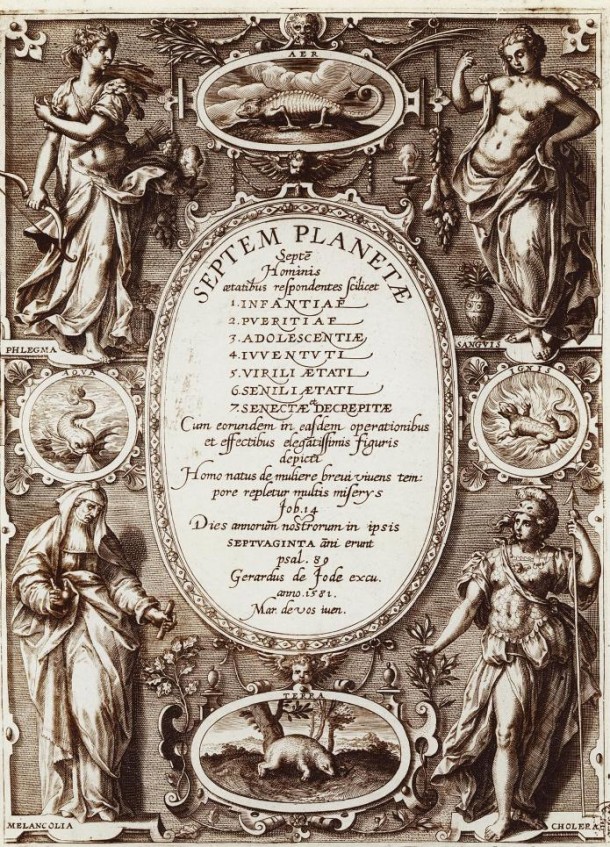 AER
SEPTEM PLANETÆ
Septē
Hominis
ætatibus respondentes scilicet
1. INFANTIAE
2. PVERITIAE
3. ADOLESCENTIÆ
4. IVVENTVTI
5. VIRILI ÆTATI
6. SENILI ÆTATI
7. SENECTÆ et DECREPITÆ
Cum eorundem in easdem operationibus
et effectibus elegātissimis figuris
depicti
Homo natus de muliere breui viuens tem:
pore repletur multis miserys
Job. 14
Dies annorūm nostrorum in ipsis
SEPTVAGINTA āni erunt
psal. 89
Gerardus de Jode excu.
anno. 1581.
Mar. de vos iuen.
PHLEGMA
SANGVIS
AQVA
IGNIS
TERRA
MELANCOLIA
CHOLERA